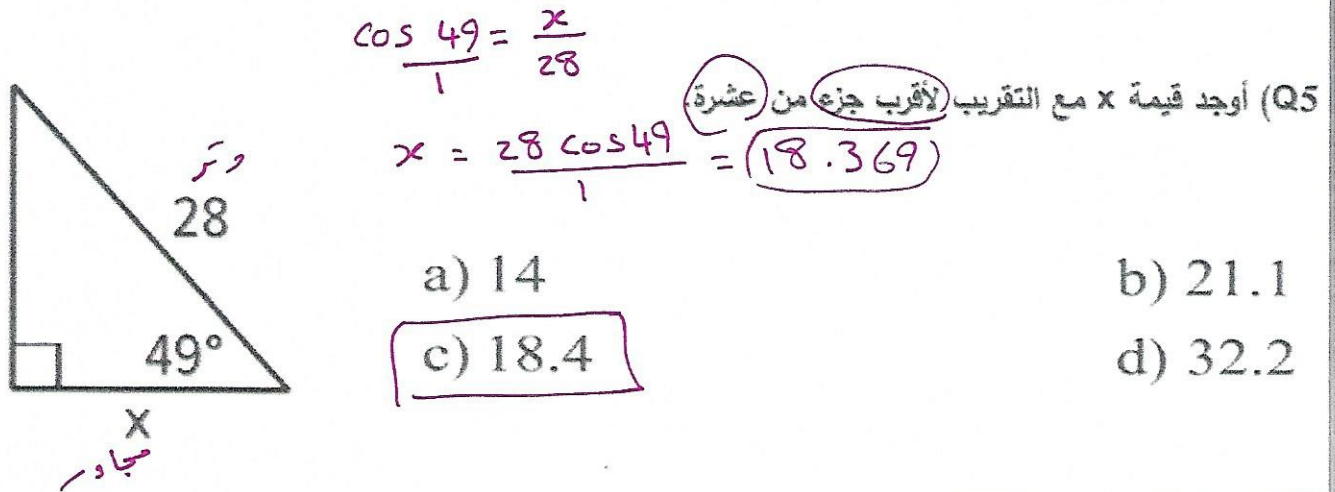 cos 49/1 = x/28
Q5) أوجد قيمة x مع التقريب لأقرب جزء من عشرة.
x = 28 cos 49/1 = 18.369
وتر
28
49°
x
مجاور
a) 14
b) 21.1
c) 18.4
d) 32.2